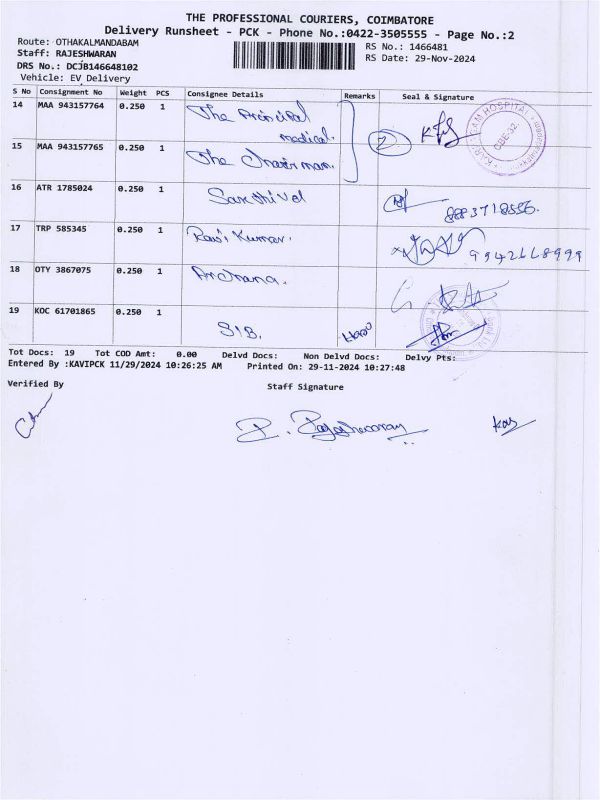 THE PROFESSIONAL COURIERS, COIMBATORE
Delivery Runsheet - PCK - Phone No.:0422-3505555 - Page No.:2
Route: OTHAKALMANDABAM
RS No.: 1466481
Staff: RAJESHWARAN
RS Date: 29-Nov-2024
DRS No.: DCJB146648102
Vehicle: EV Delivery
S No Consignment No Weight PCS Consignee Details Remarks Seal & Signature
14 MAA 943157764 0.250 1 The Principal
medical.
15 MAA 943157765 0.250 1 The Chairman. 2
16 ATR 1785024 0.250 1 Sakthivel 8883718556.
17 TRP 585345 0.250 1 Ravi Kumar. 9942668999
18 OTY 3867075 0.250 1 Archana.
19 KOC 61701865 0.250 1 SIB.
Tot Docs: 19 Tot COD Amt: 0.00 Delvd Docs: Non Delvd Docs: Delvy Pts:
Entered By :KAVIPCK 11/29/2024 10:26:25 AM Printed On: 29-11-2024 10:27:48
Verified By
Staff Signature